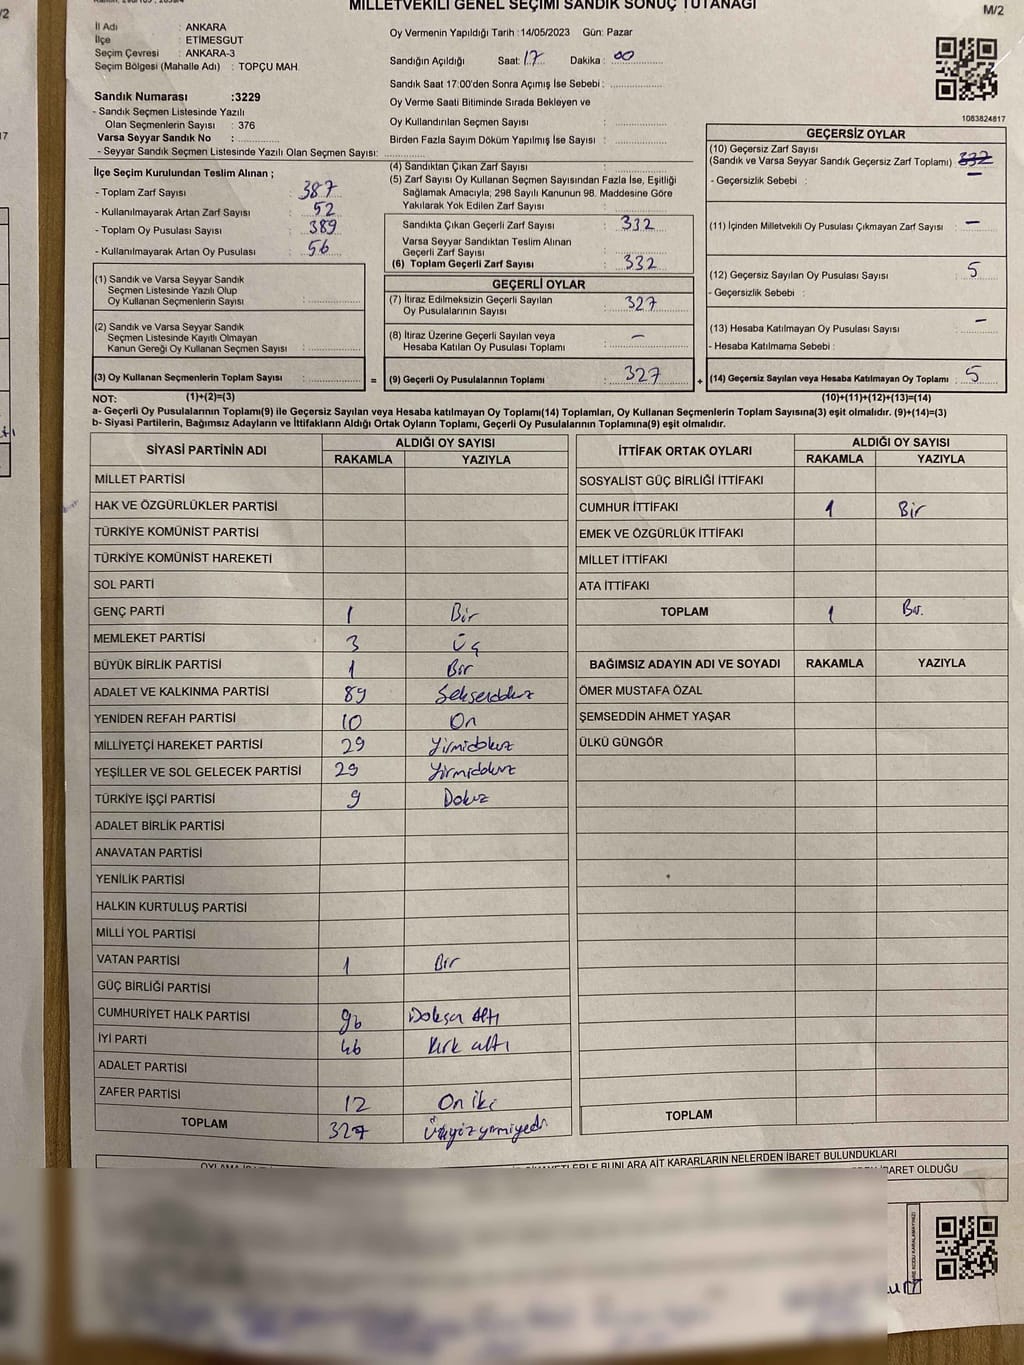 MİLLETVEKİLİ GENEL SEÇİMİ SANDIK SONUÇ TUTANAĞI
M/2
İl Adı : ANKARA
İlçe : ETİMESGUT
Seçim Çevresi : ANKARA-3
Seçim Bölgesi (Mahalle Adı) : TOPÇU MAH.
Oy Vermenin Yapıldığı Tarih :14/05/2023 Gün: Pazar
Sandığın Açıldığı Saat: 17 Dakika : 00
Sandık Saat 17:00'den Sonra Açımış İse Sebebi :
Oy Verme Saati Bitiminde Sırada Bekleyen ve
Oy Kullandırılan Seçmen Sayısı :
Birden Fazla Sayım Döküm Yapılmış İse Sayısı :
1083824817
Sandık Numarası :3229
- Sandık Seçmen Listesinde Yazılı
Olan Seçmenlerin Sayısı : 376
Varsa Seyyar Sandık No :
- Seyyar Sandık Seçmen Listesinde Yazılı Olan Seçmen Sayısı:
İlçe Seçim Kurulundan Teslim Alınan ;
- Toplam Zarf Sayısı : 387
- Kullanılmayarak Artan Zarf Sayısı : 52
- Toplam Oy Pusulası Sayısı : 389
- Kullanılmayarak Artan Oy Pusulası : 56
(1) Sandık ve Varsa Seyyar Sandık
Seçmen Listesinde Yazılı Olup
Oy Kullanan Seçmenlerin Sayısı :
(2) Sandık ve Varsa Seyyar Sandık
Seçmen Listesinde Kayıtlı Olmayan
Kanun Gereği Oy Kullanan Seçmen Sayısı :
(3) Oy Kullanan Seçmenlerin Toplam Sayısı :
(1)+(2)=(3)
(4) Sandıktan Çıkan Zarf Sayısı :
(5) Zarf Sayısı Oy Kullanan Seçmen Sayısından Fazla İse, Eşitliği
Sağlamak Amacıyla; 298 Sayılı Kanunun 98. Maddesine Göre
Yakılarak Yok Edilen Zarf Sayısı :
Sandıkta Çıkan Geçerli Zarf Sayısı : 332
Varsa Seyyar Sandıktan Teslim Alınan
Geçerli Zarf Sayısı :
(6) Toplam Geçerli Zarf Sayısı : 332
GEÇERLİ OYLAR
(7) İtiraz Edilmeksizin Geçerli Sayılan
Oy Pusulalarının Sayısı : 327
(8) İtiraz Üzerine Geçerli Sayılan veya
Hesaba Katılan Oy Pusulası Toplamı : -
= (9) Geçerli Oy Pusulalarının Toplamı : 327
GEÇERSİZ OYLAR
(10) Geçersiz Zarf Sayısı
(Sandık ve Varsa Seyyar Sandık Geçersiz Zarf Toplamı) : 332
- Geçersizlik Sebebi : -
(11) İçinden Milletvekili Oy Pusulası Çıkmayan Zarf Sayısı : -
(12) Geçersiz Sayılan Oy Pusulası Sayısı : 5
- Geçersizlik Sebebi :
(13) Hesaba Katılmayan Oy Pusulası Sayısı : -
- Hesaba Katılmama Sebebi :
+ (14) Geçersiz Sayılan veya Hesaba Katılmayan Oy Toplamı : 5
(10)+(11)+(12)+(13)=(14)
NOT:
a- Geçerli Oy Pusulalarının Toplamı(9) ile Geçersiz Sayılan veya Hesaba katılmayan Oy Toplamı(14) Toplamları, Oy Kullanan Seçmenlerin Toplam Sayısına(3) eşit olmalıdır. (9)+(14)=(3)
b- Siyasi Partilerin, Bağımsız Adayların ve İttifakların Aldığı Ortak Oyların Toplamı, Geçerli Oy Pusulalarının Toplamına(9) eşit olmalıdır.
SİYASİ PARTİNİN ADI ALDIĞI OY SAYISI
RAKAMLA YAZIYLA
MİLLET PARTİSİ
HAK VE ÖZGÜRLÜKLER PARTİSİ
TÜRKİYE KOMÜNİST PARTİSİ
TÜRKİYE KOMÜNİST HAREKETİ
SOL PARTİ
GENÇ PARTİ 1 Bir
MEMLEKET PARTİSİ 3 Üç
BÜYÜK BİRLİK PARTİSİ 1 Bir
ADALET VE KALKINMA PARTİSİ 89 Seksendokuz
YENİDEN REFAH PARTİSİ 10 On
MİLLİYETÇİ HAREKET PARTİSİ 29 Yirmidokuz
YEŞİLLER VE SOL GELECEK PARTİSİ 29 Yirmidokuz
TÜRKİYE İŞÇİ PARTİSİ 9 Dokuz
ADALET BİRLİK PARTİSİ
ANAVATAN PARTİSİ
YENİLİK PARTİSİ
HALKIN KURTULUŞ PARTİSİ
MİLLİ YOL PARTİSİ
VATAN PARTİSİ 1 Bir
GÜÇ BİRLİĞİ PARTİSİ
CUMHURİYET HALK PARTİSİ 96 Doksan Altı
İYİ PARTİ 46 Kırk altı
ADALET PARTİSİ
ZAFER PARTİSİ 12 On iki
TOPLAM 327 Üçyüzyirmiyedi
İTTİFAK ORTAK OYLARI ALDIĞI OY SAYISI
RAKAMLA YAZIYLA
SOSYALİST GÜÇ BİRLİĞİ İTTİFAKI
CUMHUR İTTİFAKI 1 Bir
EMEK VE ÖZGÜRLÜK İTTİFAKI
MİLLET İTTİFAKI
ATA İTTİFAKI
TOPLAM 1 Bir.
BAĞIMSIZ ADAYIN ADI VE SOYADI RAKAMLA YAZIYLA
ÖMER MUSTAFA ÖZAL
ŞEMSEDDİN AHMET YAŞAR
ÜLKÜ GÜNGÖR
TOPLAM
BUNLARA AİT KARARLARIN NELERDEN İBARET BULUNDUKLARI
İBARET OLDUĞU